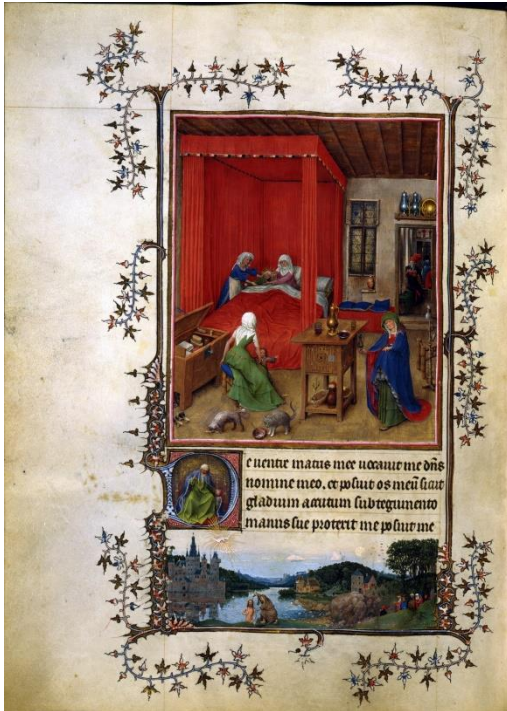 De ventre matris mee uocauit me dn̄s
nomine meo. et posuit os meū sicut
gladium acutum sub tegumento
manus sue protexit me posuit me